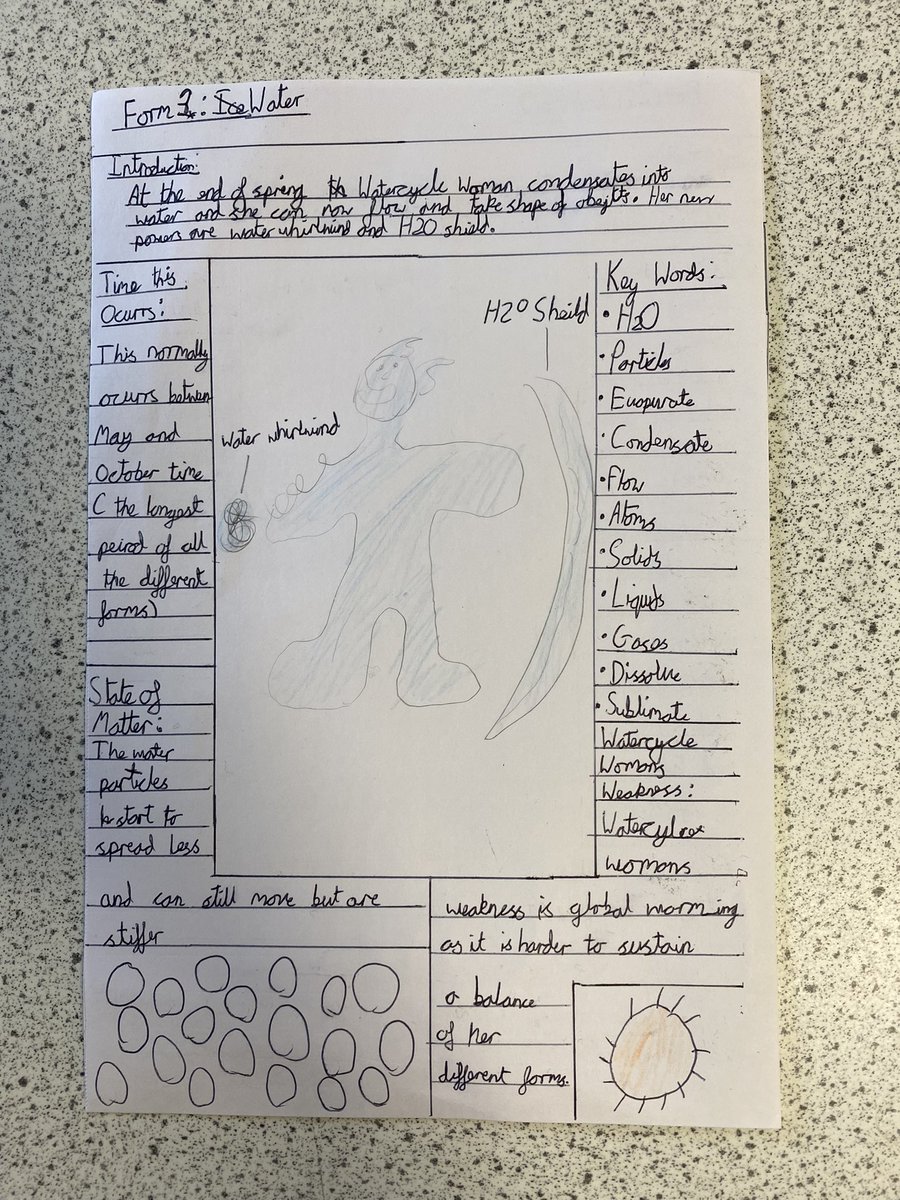 Form 3: Ice Water
Introduction:
At the end of spring th Watercycle Woman condensates into
water and she can now flow and take shape of obejcts. Her new
powers are water whirlwind and H2O shield.
Time this
Ocurrs:
This normally
ocurrs between
May and
October time
( the longest
peirod of all
the different
forms)
State of
Matter:
The water
particles
start to
spread less
and can still move but are
stiffer
H2O Sheild
water whirlwind
Key Words:
• H2O
• Particles
• Evaporate
• Condensate
• Flow
• Atoms
• Solids
• Liquids
• Gases
• Dissolve
• Sublimate
Watercycle
Womans
Weakness:
womans
weakness is global warming
as it is harder to sustain
a balance
of her
different forms.